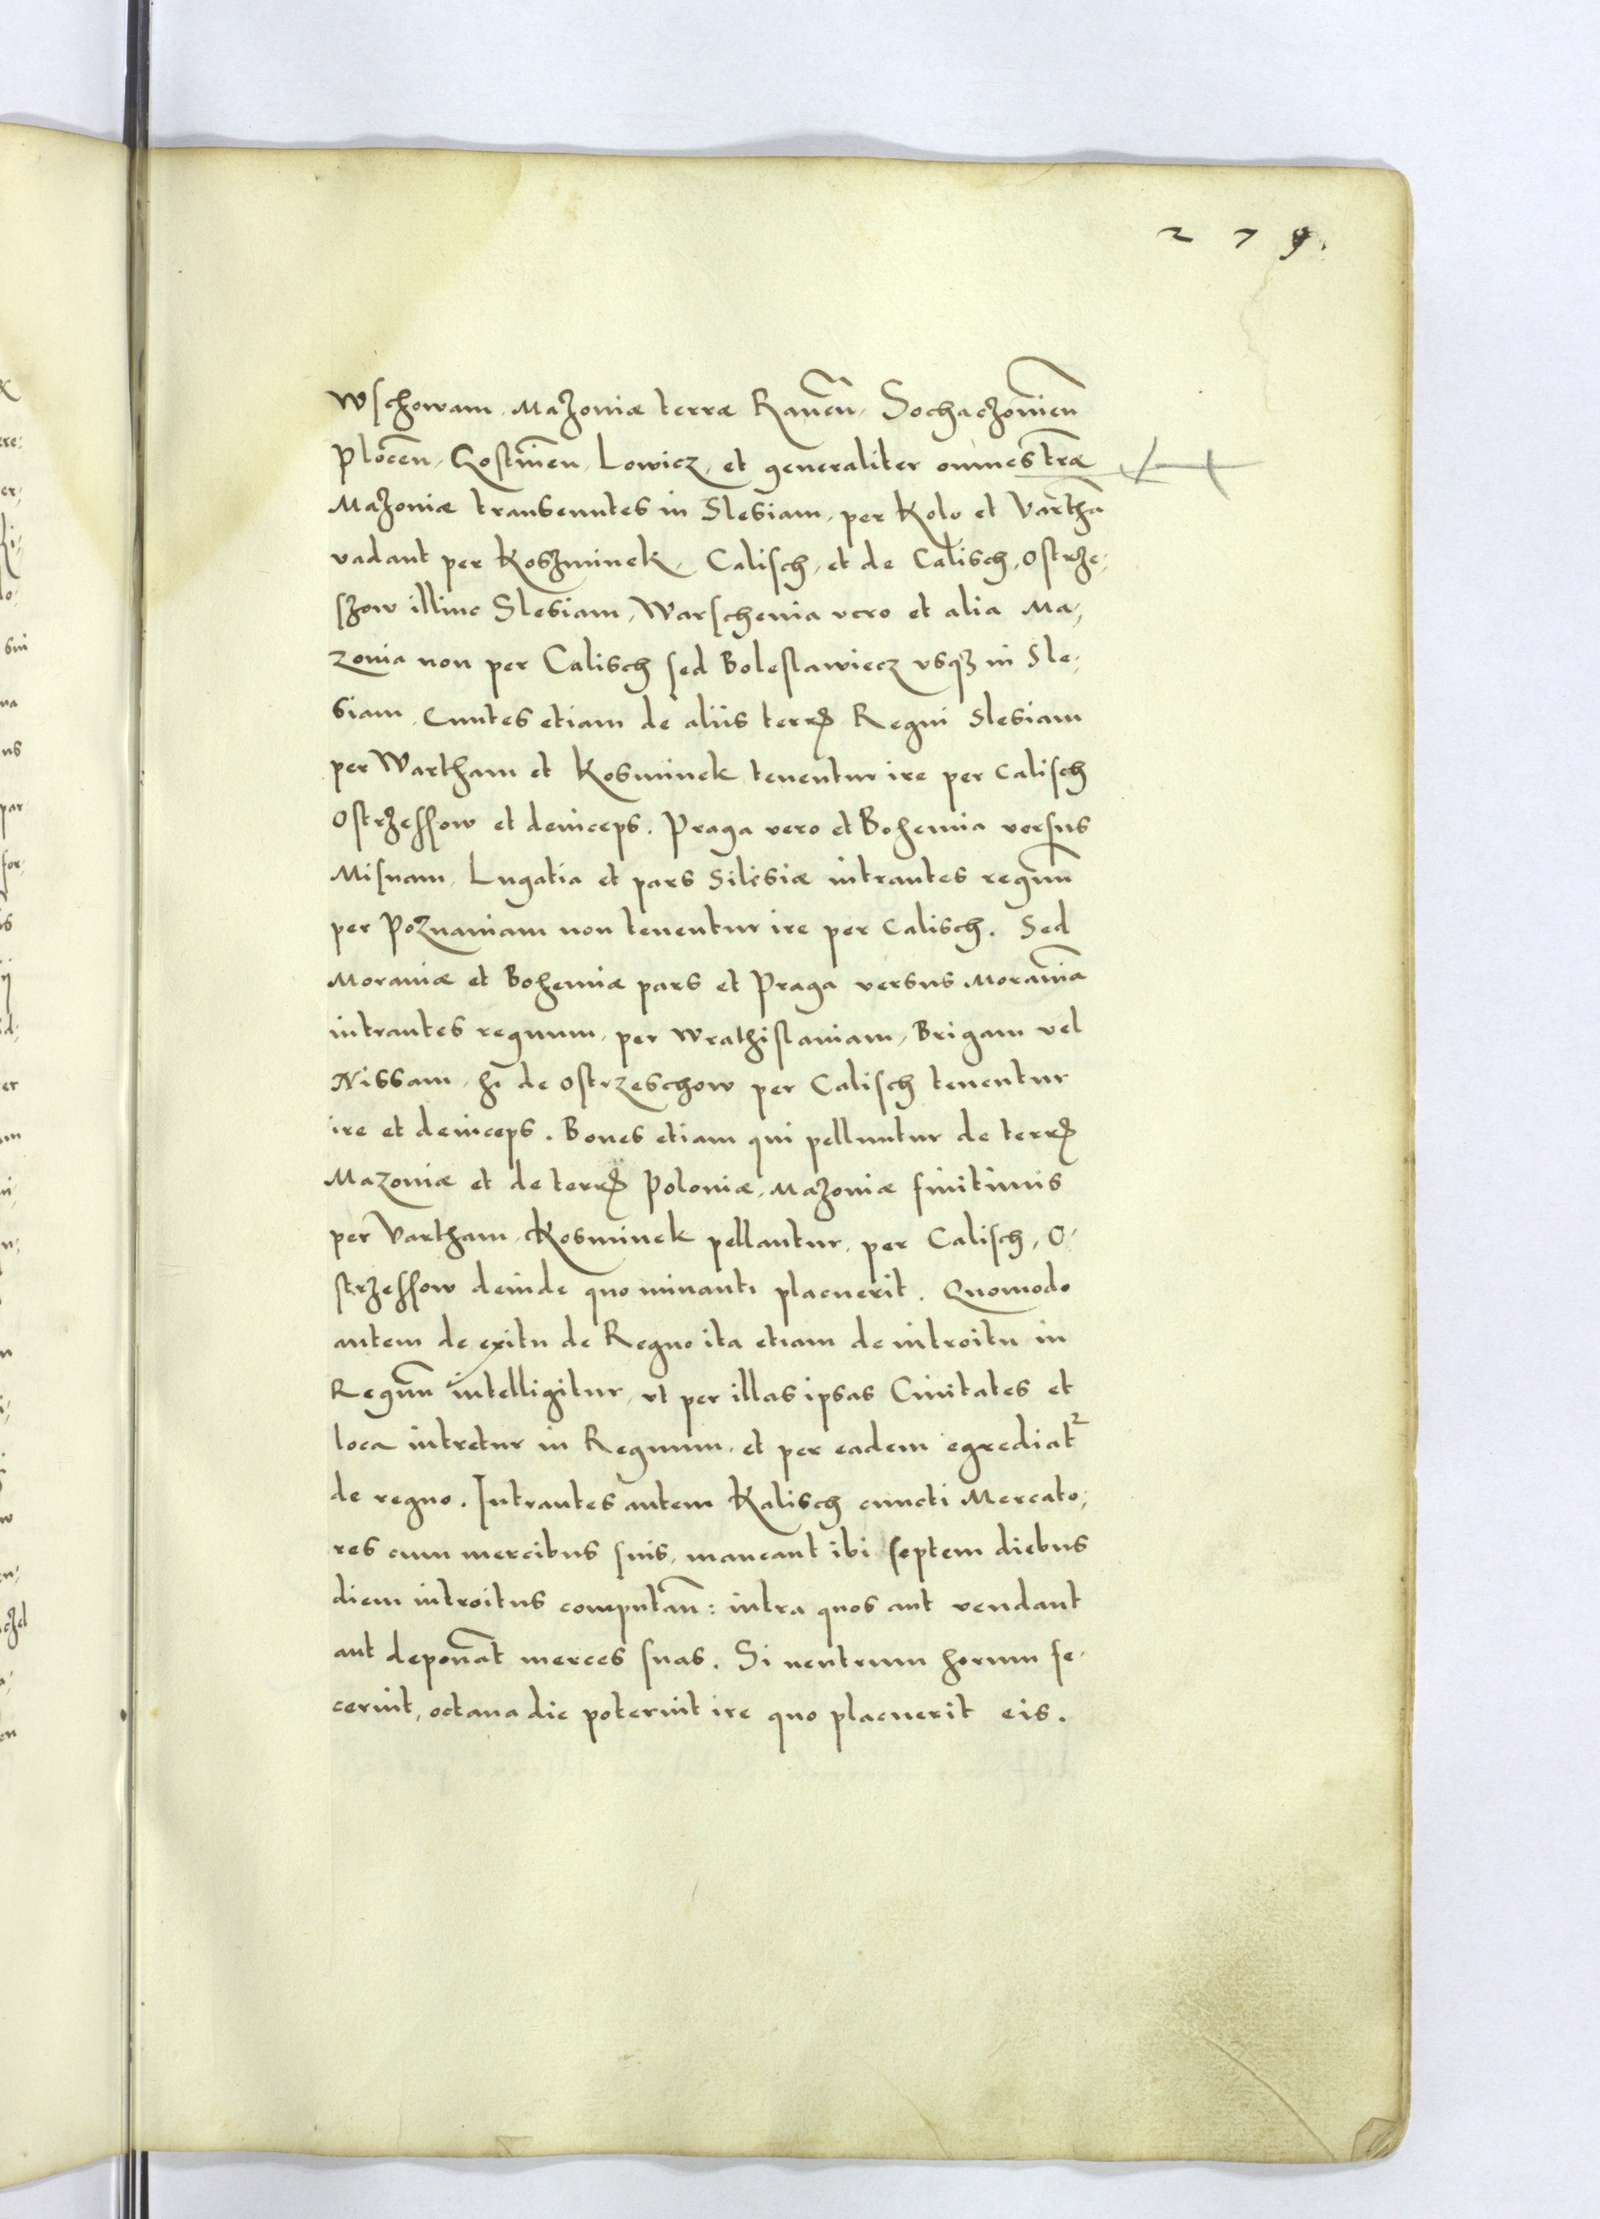 279.
Wschowam, Mazoviæ terræ Raven̄, Sochaczovien̄
Plocen̄, Gostinen̄, Lowicz, et generaliter omnes tr̄æ
Mazoviæ transeuntes in Slesiam, per Kolo et Varthā
vadant per Koszminek, Calisch, et de Calisch, Ostrze-
szow illinc Slesiam, Warschevia vero et alia Ma-
zovia non per Calisch sed Boleslawiecz usqꝫ in Sle-
siam. Euntes etiam de aliis terrꝭ Regni Slesiam
per Wartham et Kosminek tenentur ire per Calisch
Ostrzessow et deinceps. Praga vero et Bohemia versus
Misnam, Lugatia et pars Silesiæ intrantes regnum̄
per Poznaniam non tenentur ire per Calisch. Sed
Moraviæ et Bohemiæ pars et Praga versus Moraviā
intrantes regnum, per Wrathislaviam, Brigam vel
Nissam, hi de Ostrzeschow per Calisch tenentur
ire et deinceps. Boves etiam qui pelluntur de terrꝭ
Mazoviæ et de terrꝭ Poloniæ, Mazoviæ finitimis
per Vartham, Kosminek pellantur, per Calisch, O-
strzessow deinde quo minanti placuerit. Quomodo
autem de exitu de Regno ita etiam de introitu in
Regnū intelligitur, ut per illas ipsas Civitates et
loca intretur in Regnum, et per eadem egrediat᷑
de regno. Intrantes autem Kalisch cuncti Mercato-
res cum mercibus suis, maneant ibi septem diebus
diem introitus computan̄: intra quos aut vendant
aut deponāt merces suas. Si neutrum horum fe-
cerint, octava die poterint ire quo placuerit eis.